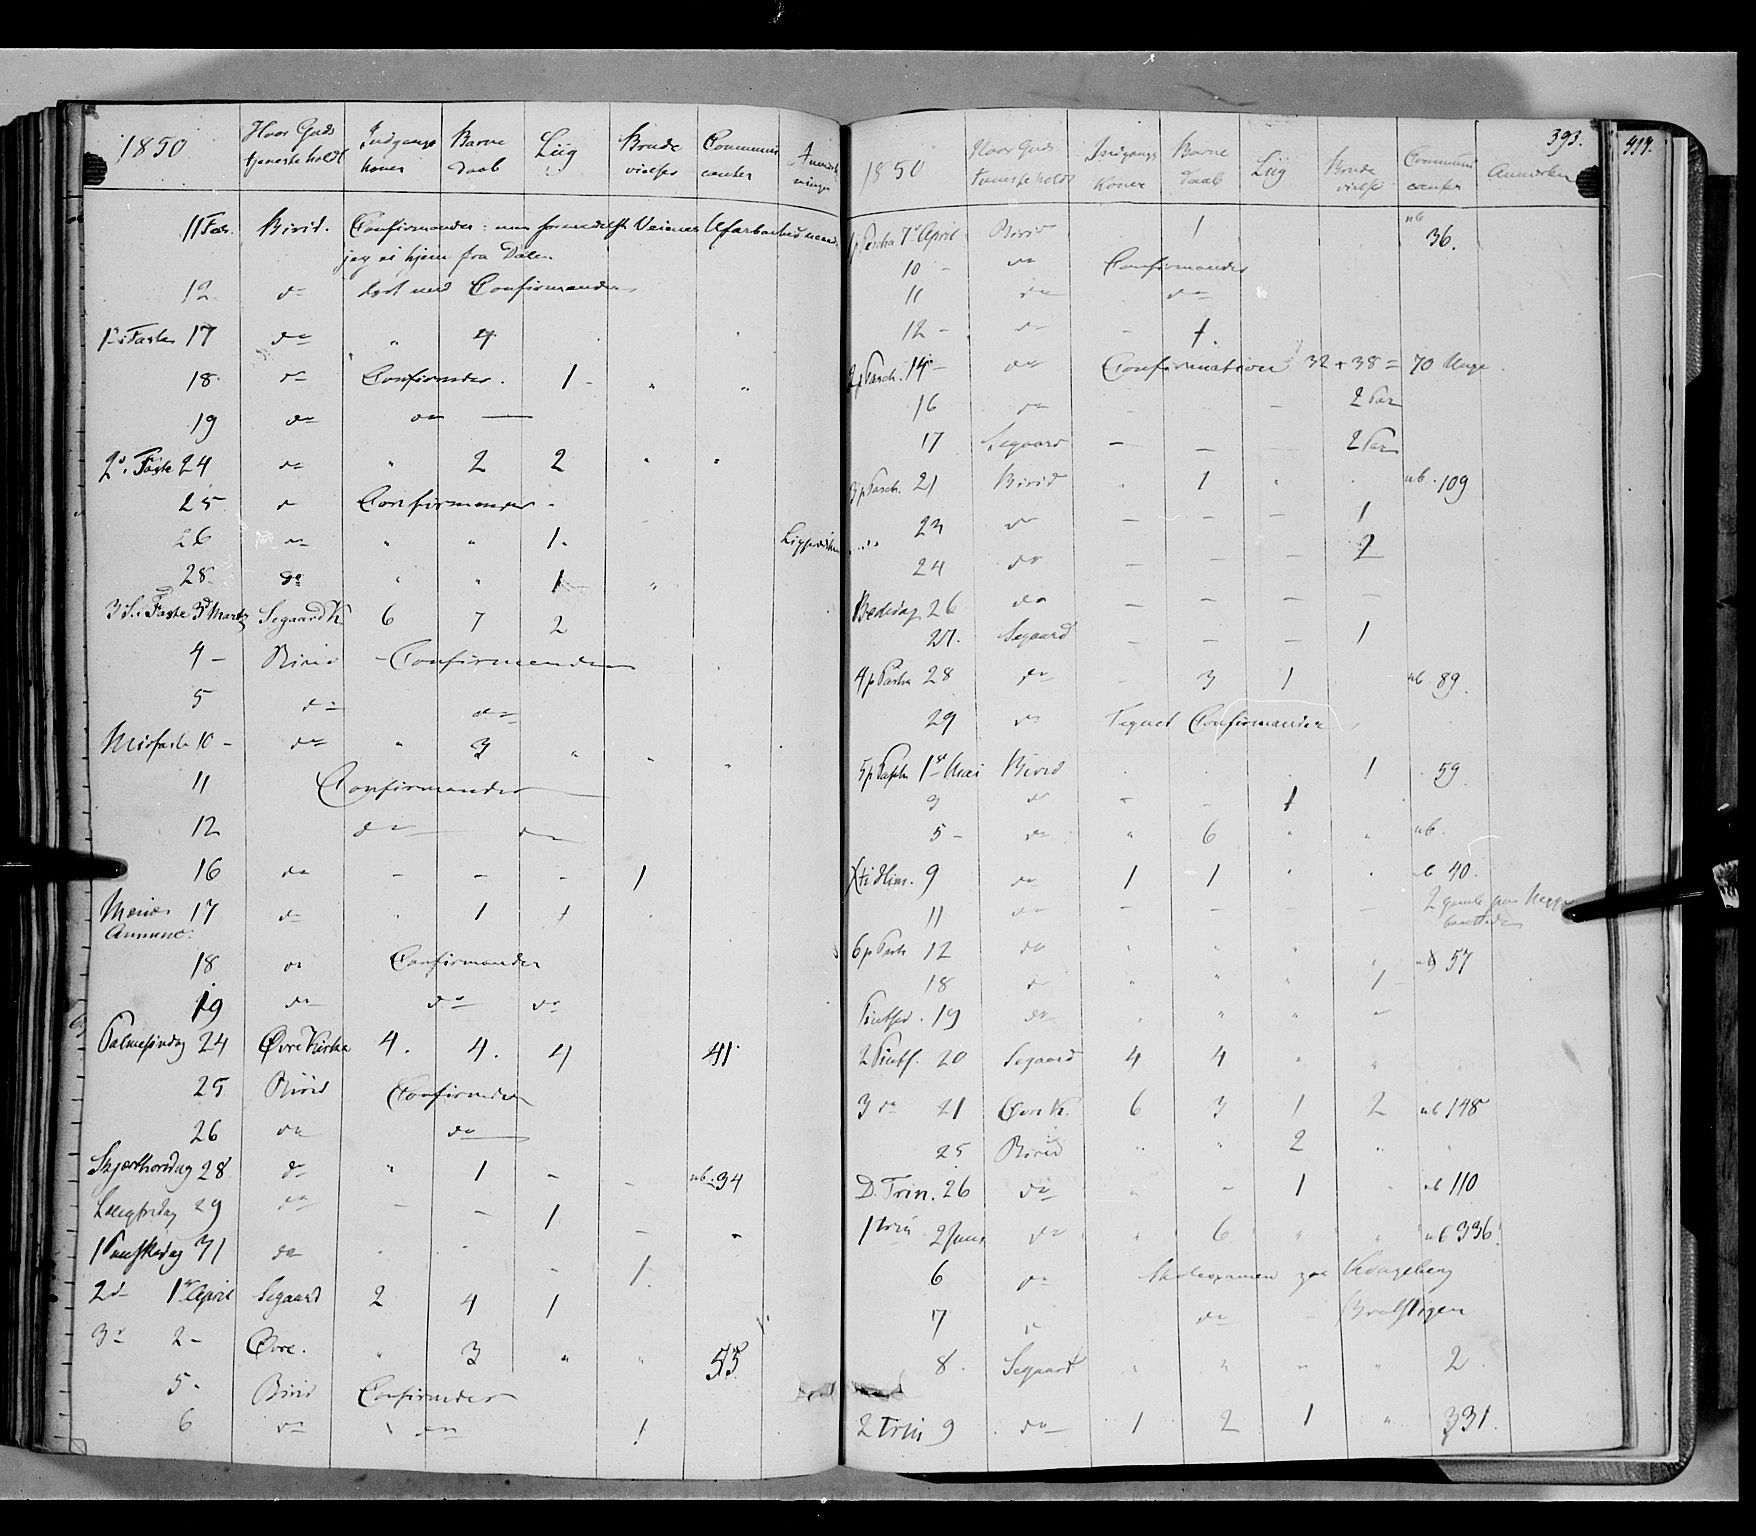 1850 Hvor Guds tjeneste holdt Indgangs koner Barne daab Liig Brude vielser Communi canter Anmærk ninger
11 Fbr. Birid. Confirmander: men formedelst Veienes
jeg ei hjem fra Dalen
12 do læst med Confirmander
1 S. i Faste 17 do " 4
18 do Confirmder. 1 - " "
19 do do —
2 S. i Faste 24 do " 2 2 " "
25 d Confirmander -
26 do " " 1.
28 do " " 1 "
3 S. i Faste 3d Marts Segaard K 6 7 2
4 - Birid - Confirmander
5 do do
Midfaste 10 - do " 3 " " "
11 Confirmander
12 do do
16 do - - - 1
Mariæ 17 do " 1 1
Annunc.
18 do Confirmander
19 do do do
Palmesøndag 24 Øvre Kirke 4. 4. 4 41
25 Birid Confirmder
26 do do
Skjærthorsdag 28 do " 1 - - nb. 34
Langfredag 29 do - - 1 - -
1 Paaskedag 31 do - - - 1.
2d 1 April Segaard 2 4 1
3d 2 - Øvre. " 3 " " 55
5 - Birid Confirmder
6 do do 1
393.
1850 Hvor Guds tjeneste holdt Indgangs Koner Barne daab Liig Brude vielse Communi canter Anmærkn
1 p Pascha 7d April Birid 1 nb 36.
10 - do Confirmander
11 do do
12 - do - 1.
2 p Pasch. 14 - do Confirmation 32 + 38 = 70 Unge.
16 do - - - 2 Par
17 Segaard - - - 2 Par
3 p Pasch. 21 Birid " 1 " " nb. 109
23 do - - - 1
24 do - - - 2
Bededag 26 do - - - -
27. Segaard - - - 1
4 p Pascha 28 do - 3 1 nb 89.
29 do Tegnet Confirmander
5 p Pasch 1 Mai Birid . . . 1 59.
3 do - - 1
5 - do " 6 " " nb.
Xti Him. 9 do 1 1 " " nb 40.
11 do - - - - 2 gamle
6 p Pasch 12 do " " " " nb 57
18 do " " " 1 -
Pintsed. 19 do " " " -
2 Pintsd. 20 Segaard 4 4 " " "
3 do 21 Øvre K. 6 3 1 2 nb 148
25 Birid " " 2 " "
D. Trin. 26 do " - 1 " nb 110
1 Trin 2 Juni do " 6 " " nb 336
6 do Skoleexamen paa
7 do do -
8. Segaard " " " " 2.
2 Trin 9 do 1 2 1 " 331.